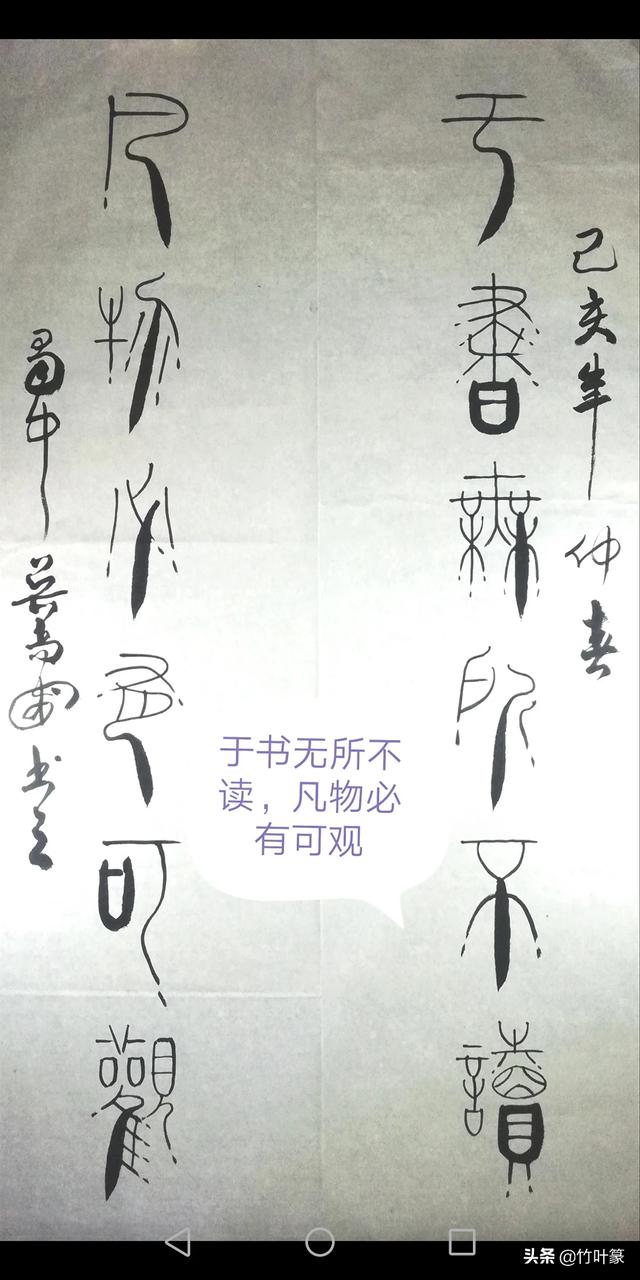 己亥年仲春
于書無所不讀
凡物必有可觀
蜀中
书之
于书无所不
读，凡物必
有可观
头条 @竹叶篆